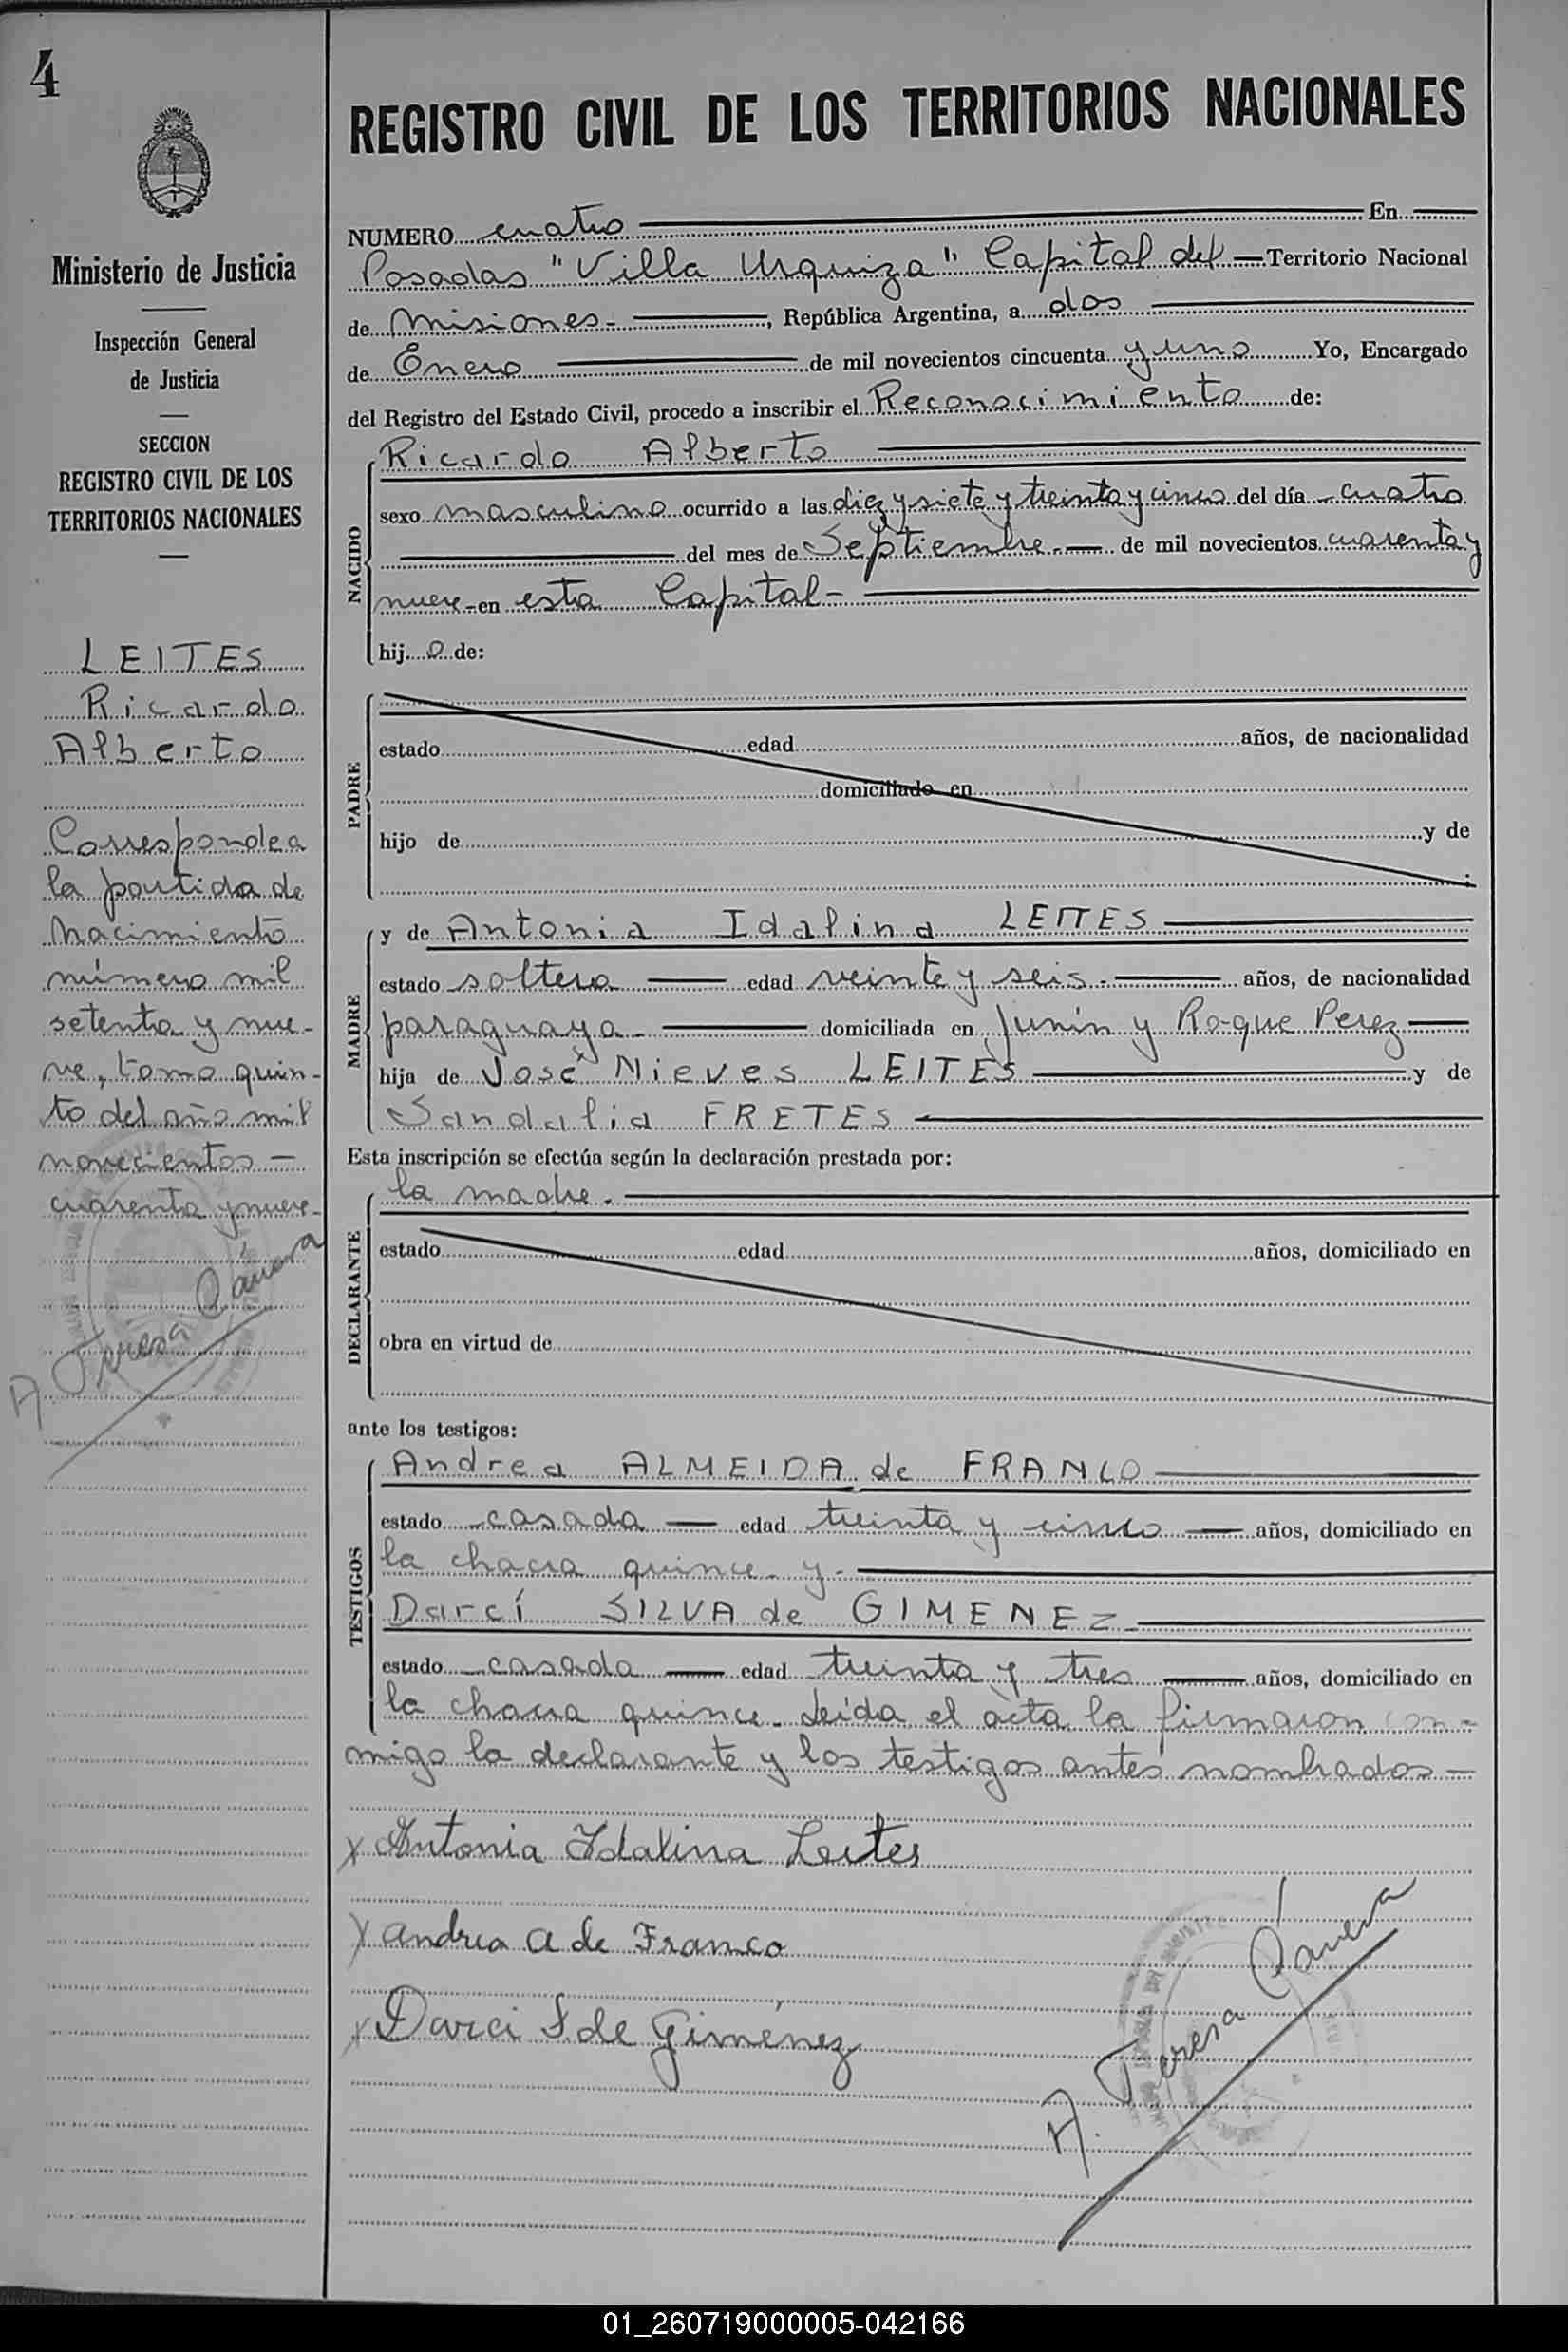 4
Ministerio de Justicia
Inspección General
de Justicia
SECCION
REGISTRO CIVIL DE LOS
TERRITORIOS NACIONALES
LEITES
Ricardo
Alberto
Corresponde a
la partida de
Nacimiento
número mil
setenta y nue-
ve, tomo quin-
to del año mil
novecientos —
cuarenta y nueve-
A Teresa
REGISTRO CIVIL DE LOS TERRITORIOS NACIONALES
NUMERO cuatro En
Posadas "Villa Urquiza" Capital del Territorio Nacional
de Misiones.-, República Argentina, a dos
de Enero de mil novecientos cincuenta y uno Yo, Encargado
del Registro del Estado Civil, procedo a inscribir el Reconocimiento de:
NACIDO
Ricardo Alberto
sexo masculino ocurrido a las diez y siete y treinta y cinco del día cuatro
del mes de Septiembre.- de mil novecientos cuarenta y
nueve-en esta Capital-
hij o de:
PADRE
estado edad años, de nacionalidad
domiciliado en
hijo de y de
;
MADRE
y de Antonia Idalina LEITES
estado soltera edad veinte y seis.- años, de nacionalidad
paraguaya.- domiciliada en Junín y Roque Perez
hija de José Nieves LEITES y de
Sandalia FRETES
Esta inscripción se efectúa según la declaración prestada por:
DECLARANTE
la madre.-
estado edad años, domiciliado en
obra en virtud de
ante los testigos:
TESTIGOS
Andrea ALMEIDA de FRANCO
estado casada edad treinta y cinco años, domiciliado en
la chacra quince. y.-
Darcí SILVA de GIMENEZ.-
estado casada edad treinta y tres años, domiciliado en
la chacra quince. Leída el acta la firmaron con-
migo la declarante y los testigos antes nombrados —
x Antonia Idalina Leites
x Andrea A de Franco
x Darci S de Giménez
A. Teresa
01_260719000005-042166